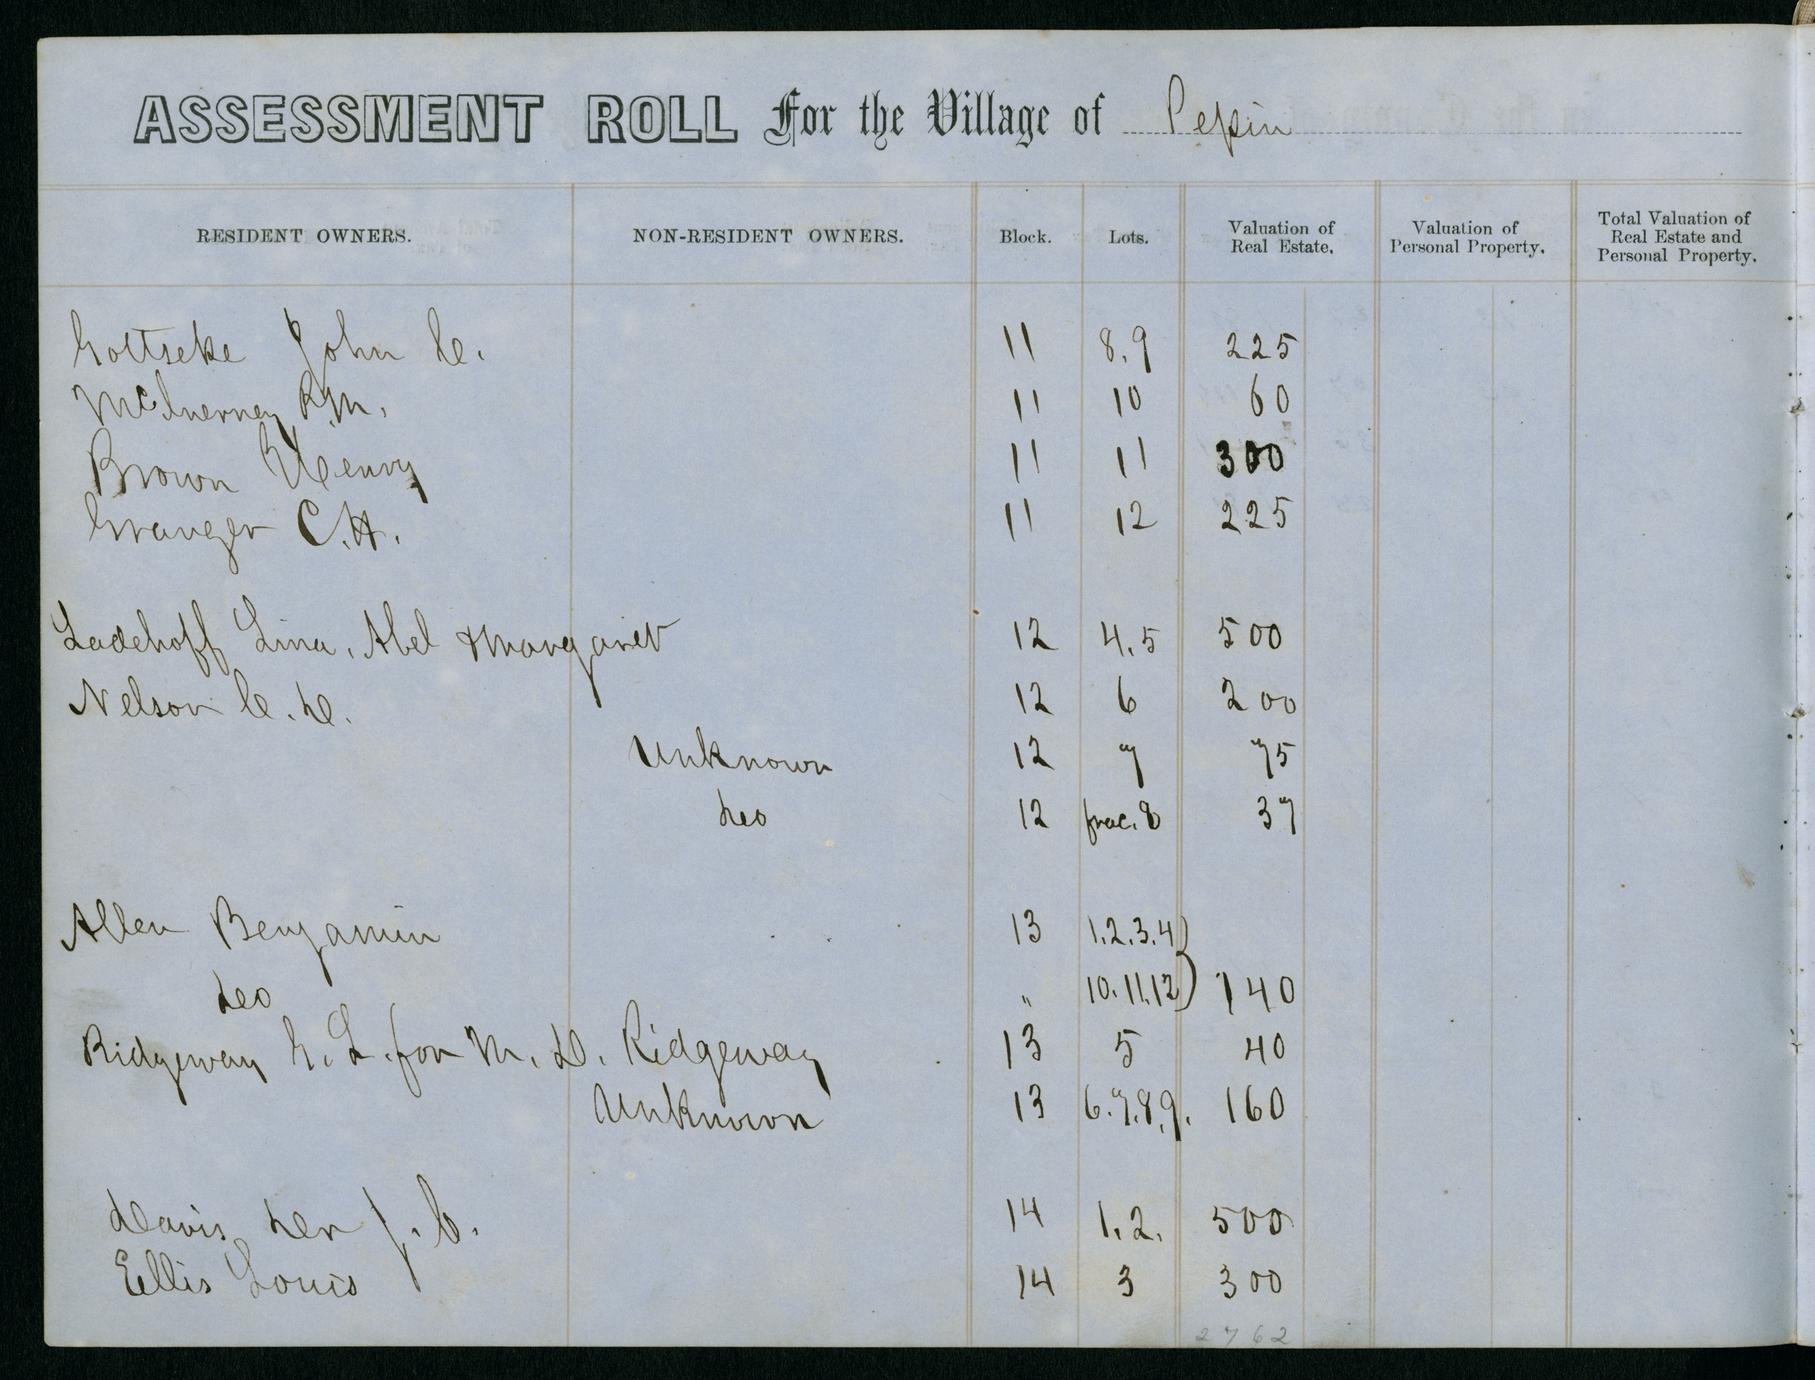 ASSESSMENT ROLL For the Village of Pepin
RESIDENT OWNERS. NON-RESIDENT OWNERS. Block. Lots. Valuation of Real Estate. Valuation of Personal Property. Total Valuation of Real Estate and Personal Property.
John C. 11 8.9 225
McInerney R.M. 11 10 60
Brown Henry 11 11 300
Granger C.H. 11 12 225
Ladehoff Lina, Abel & Margaret 12 4.5 500
Nelson C. D. 12 6 200
Unknown 12 7 75
Do 12 frac. 8 37
Allen Benjamin 13 1.2.3.4
Do " 10.11.12 140
Ridgeway G. L. for M. D. Ridgeway 13 5 40
Unknown 13 6.7.8.9. 160
Davis J. C. 14 1.2. 500
Ellis Louis 14 3 300
2762